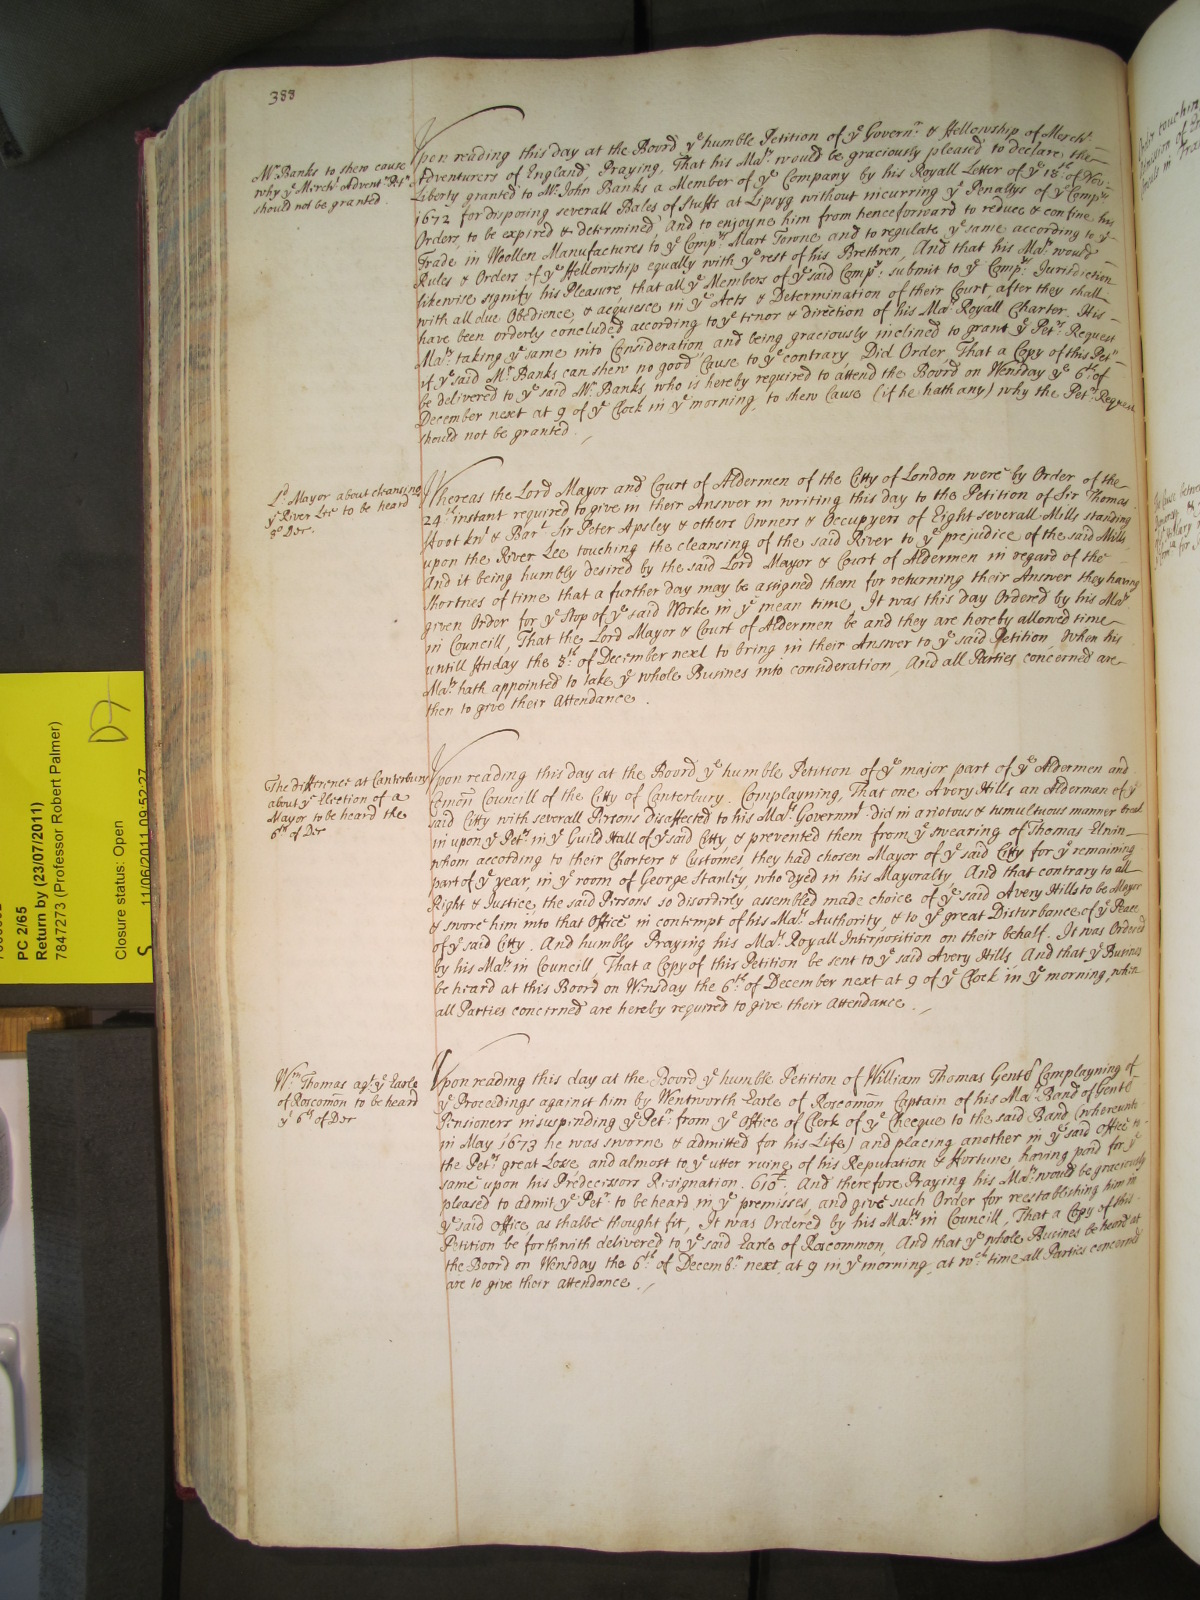 388
Mr. Banks to shew cause
why ye Merchts Adventrs Petn
should not be granted.
Upon reading this day at the Board ye humble Petition of ye Governr & Fellowship of Mercht
Adventurers of England, Praying, That his Maty. would be graciously pleased to declare, the
Liberty granted to Mr. John Banks a Member of ye Company by his Royall Letter of ye 18th of Nov:
1672 for disposing severall Bales of Stuffs at Lipsyg without incurring ye Penaltys of ye Compys
Orders, to be expired & determined, And to enjoyne him from henceforward to reduce & confine his
Trade in Woollen Manufactures to ye Compys. Mart Towne, and to regulate ye same according to ye
Rules & Orders of ye Fellowship equally with ye rest of his Brethren, And that his Maty. would
likewise signify his Pleasure, that all ye Members of ye said Compy. submit to ye Compys. Jurisdiction
with all due Obedience, & acquiesce in ye Acts & Determination of their Court, after they shall
have been orderly concluded according to ye tenor & direction of his Mats. Royall Charter. His
Maty. taking ye same into Consideration and being graciously inclined to grant ye Petrs. Request
if ye said Mr. Banks can shew no good Cause to ye contrary, Did Order, That a Copy of this Petn
be delivered to ye said Mr. Banks, who is hereby required to attend the Board on Wensday ye 6th of
December next at 9 of ye Clock in ye morning, to shew Cause (if he hath any) why the Petrs. Request
should not be granted.
Ld Mayor about cleansing
ye River Lee to be heard
8o Der.
Whereas the Lord Mayor and Court of Aldermen of the Citty of London were by Order of the
24th instant required to give in their Answer in writing this day to the Petition of Sir Thomas
Foot Knt & Bart Sir Peter Apsley & others Owners & Occupyers of Eight severall Mills standing
upon the River Lee touching the cleansing of the said River to ye prejudice of the said Mills,
And it being humbly desired by the said Lord Mayor & Court of Aldermen in regard of the
shortnes of time that a further day may be assigned them for returning their Answer they having
given Order for ye stop of ye said Worke in ye mean time, It was this day Ordered by his Maty.
in Councill, That the Lord Mayor & Court of Aldermen be and they are hereby allowed time
untill Friday the 8th. of December next to bring in their Answer to ye said Petition, when his
Maty. hath appointed to take ye whole Busines into consideration, And all Parties concerned are
then to give their Attendance.
The difference at Canterbury
about ye Election of a
Mayor to be heard the
6th of Der
Upon reading this day at the Board ye humble Petition of ye major part of ye Aldermen and
Comon Councill of the Citty of Canterbury. Complayning, That one Avery Hills an Alderman of ye
said Citty with severall Persons disaffected to his Mats. Governmt. did in a riotous & tumultuous manner break
in upon ye Petrs. in ye Guild Hall of ye said Citty & prevented them from ye swearing of Thomas Enin
whom according to their Charters & Customes they had chosen Mayor of ye said Citty for ye remaining
part of ye year, in ye room of George Stanley, who dyed in his Mayoralty, And that contrary to all
Right & Justice, the said Persons so disorderly assembled made choice of ye said Avery Hills to be Mayor
& swore him into that Office in contempt of his Mats. Authority, & to ye great Disturbance of ye Peace
of ye said Citty. And humbly Praying his Mats. Royall Interposition on their behalf. It was Ordered
by his Maty. in Councill, That a Copy of this Petition be sent to ye said Avery Hills, And that ye Busines
be heard at this Board on Wensday the 6th of December next at 9 of ye Clock in ye morning, when
all Parties concerned are hereby required to give their Attendance.
Wm Thomas agt ye Earle
of Roscomõn to be heard
ye 6th of Der
Upon reading this day at the Board ye humble Petition of William Thomas Gentt Complayning of
ye Proceedings against him by Wentworth Earle of Roscomõn Captain of his Mats. Band of Gentt
Pensioners in suspending ye Petr. from ye Office of Clerk of ye Checque to the said Band (whereunto
in May 1673 he was sworne & admitted for his Life) and placing another in ye said Office to
the Petrs. great Losse, and almost to ye utter ruine of his Reputation & Fortune, having paid for ye
same upon his Predecessors Resignation. 610l. And therefore Praying his Maty. would be graciously
pleased to admit ye Petr. to be heard in ye premisses, and give such Order for reestablishing him in
ye said Office as shalbe thought fit, It was Ordered by his Maty. in Councill, That a Copy of this
Petition be forthwith delivered to ye said Earle of Roscommon, And that ye whole Busines be heard at
the Board on Wensday the 6th of Decembr. next, at 9 in ye morning, at wch. time all Parties concerned
are to give their attendance.
PC 2/65
Return by (23/07/2011)
7847273 (Professor Robert Palmer)
Closure status: Open
11/06/2011 09:52:27